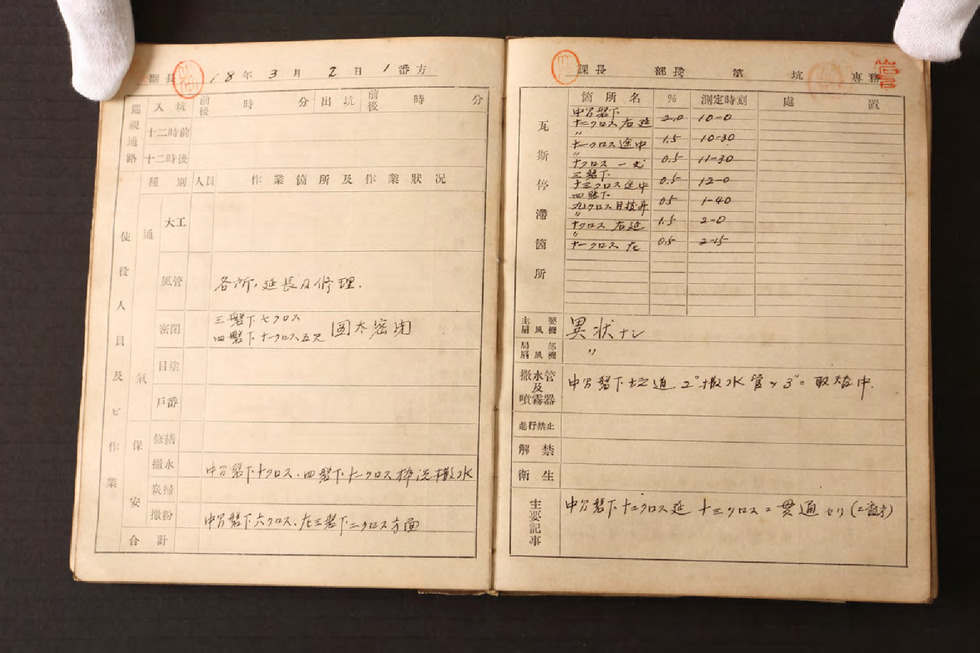 副長 18年3月2日1番方
巡視通路 入坑 前後 時 分 出坑 前後 時 分
十二時前
十二時後
使役人員及ビ作業
種別 人員 作業箇所及作業狀況
通氣
大工
風管 各所延長及修理.
密閉 三盤下七クロス
四盤下十一クロス
目塗
戸番
保安
修繕
撒水 中卸盤下十クロス.四盤下十一クロス枠洗撒水
炭掃
撒粉 中卸盤下六クロス.左三盤下二クロス方面
合計
課長 部長 第 坑 專務
管
瓦斯停滯箇所
箇所名 % 測定時刻 處置
中卸盤下
十二クロス右延 2.0 10-0
〃
十一クロス途中 1.5 10-30
〃
十クロス 0.5 11-30
三盤下
十三クロス途中 0.5 12-0
四盤下
九クロス 0.5 1-40
〃
十クロス右延 1.5 2-0
〃
十一クロス左 0.5 2-15
主要扇風機 異状ナシ
局部扇風機 〃
撒水管及噴霧器 中卸盤下 2"撒水管ヲ3"ニ取替中.
進行禁止
解禁
衛生
主要記事 中卸盤下十二クロス延 十三クロスニ貫通セリ(二番方)